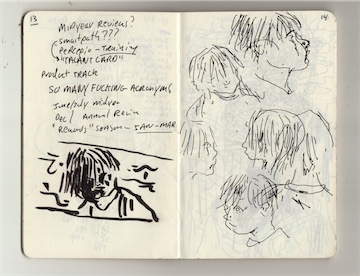 13
MIDYEAR REVIEWS?
smartpath???
(percepio - Training
"TALANT CARD"
product TRACK
SO MANY FUCKING ACRONYMS
June/July midyear
Dec/ Annual Review
"Rewards" SEASON - JAN - MAR
14